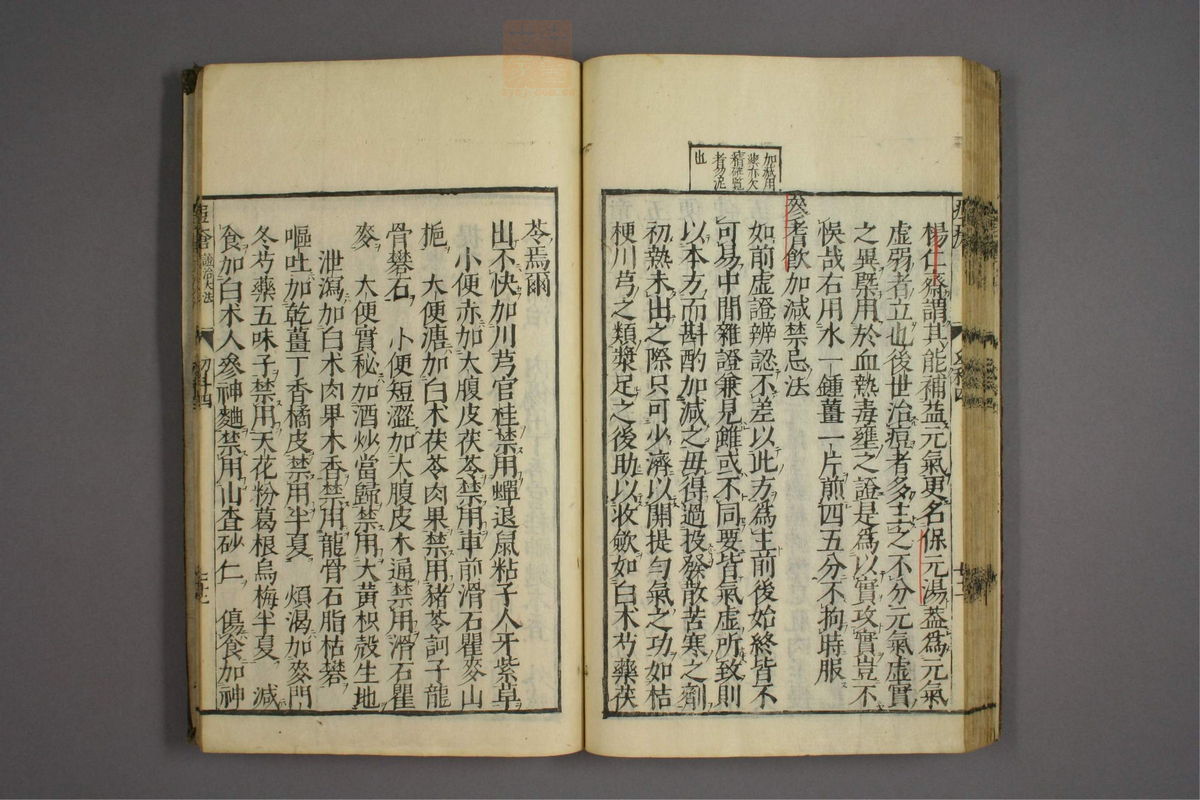 加減用
藥亦欠
精確覽
者勿泥
也
楊仁齋謂其能補益元氣更名保元湯蓋為元氣
虛弱者立也後世治痘者多主之不分元氣虛實
之異既用於血熱毒壅之證是為以實攻實豈不
悞哉右用水一鍾薑一片煎四五分不拘時服
參耆飲加減禁忌法
如前虛證辨認不差以此方為主前後始終皆不
可易中間雜證兼見雖或不同要皆氣虛所致則
以本方而斟酌加減之毋得過投發散苦寒之劑
初熱未出之際只可少濟以開提勻氣之功如桔
梗川芎之類漿足之後助以收斂如白术芍藥茯
苓焉爾
出不快加川芎官桂禁用蟬退鼠粘子人牙紫草
小便赤加大腹皮茯苓禁用車前滑石瞿麥山
梔 大便溏加白术茯苓肉果禁用猪苓訶子龍
骨礬石 小便短澀加大腹皮木通禁用滑石瞿
麥 大便實秘加酒炒當歸禁用大黃枳殼生地
泄瀉加白术肉果木香禁用龍骨石脂枯礬
嘔吐加乾薑丁香橘皮禁用半夏 煩渴加麥門
冬芍藥五味子禁用天花粉葛根烏梅半夏 減
食加白术人參神麯禁用山査砂仁 傷食加神